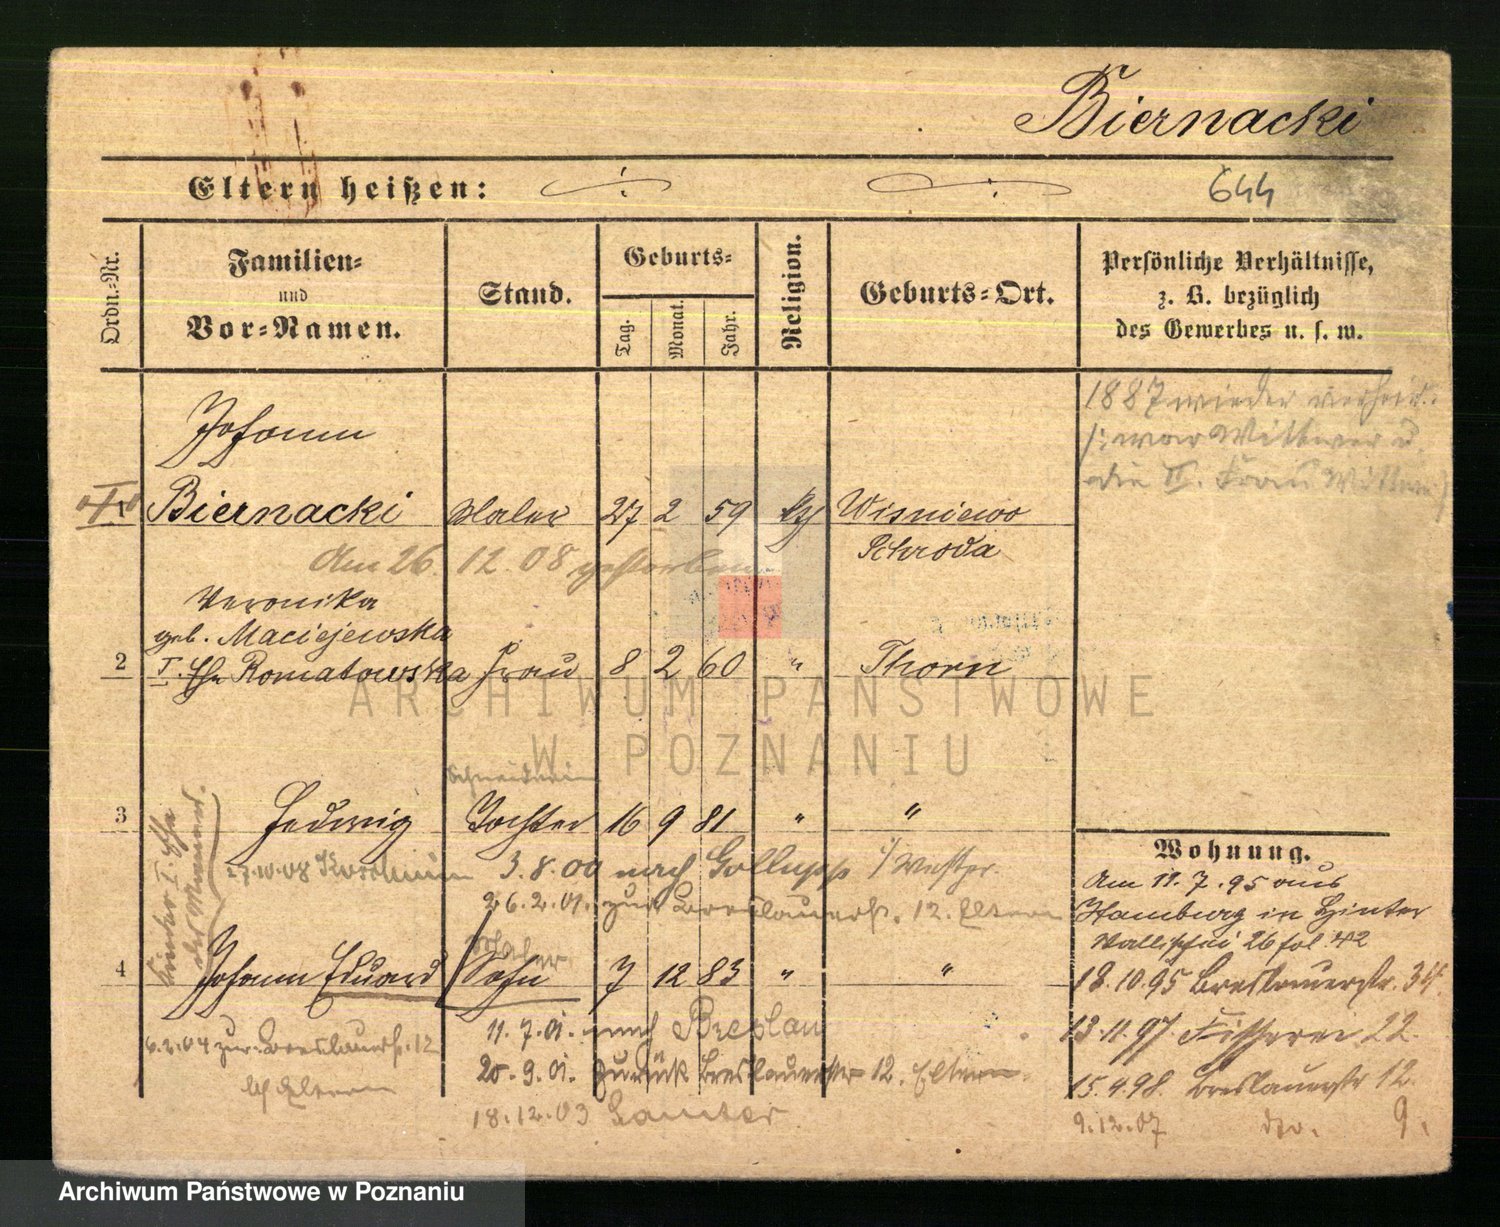 Biernacki
Eltern heißen:
644
Ordn.-Nr.
Familien-
und
Vor-Namen.
Stand.
Geburts-
Tag.
Monat.
Jahr.
Religion.
Geburts-Ort.
Persönliche Verhältnisse,
z. B. bezüglich
des Gewerbes u. s. w.
1887 wieder verheir.
/: war Wittwer u.
die II. Frau Wittwe
Johann
1 Biernacki Maler 27 2 59 Wisniewo
Schroda
Am 26. 12. 08 gestorben
Veronika
geb. Maciejewska
2 I. Ehe Romatowska Frau 8 2 60 " Thorn
ARCHIWUM PAŃSTWOWE
W POZNANIU
Schneiderin
3 Hedwig Tochter 16 9 81 " "
Kinder I. Ehe
des Mannes.
27.10.08 3.8.00 nach Gollupp /Westpr.
26.2.01. zur. Breslauerstr. 12. Eltern
Maler
4 Johann Eduard Sohn 7 12 83 " "
6.2.04 zur. Breslauerstr. 12
b/ Eltern
11.7.01. nach Breslau
20.9.01. zurück Breslauerstr 12. Eltern.
18.12.03
Wohnung.
Am 11.7.95 aus
Hamburg in Hinter
Wallischei 26 fol 42
18.10.95 Breslauerstr. 34.
13.11.97. Fischerei 22.
15.4.98. Breslauerstr 12.
9.12.07 do. 9.
Archiwum Państwowe w Poznaniu